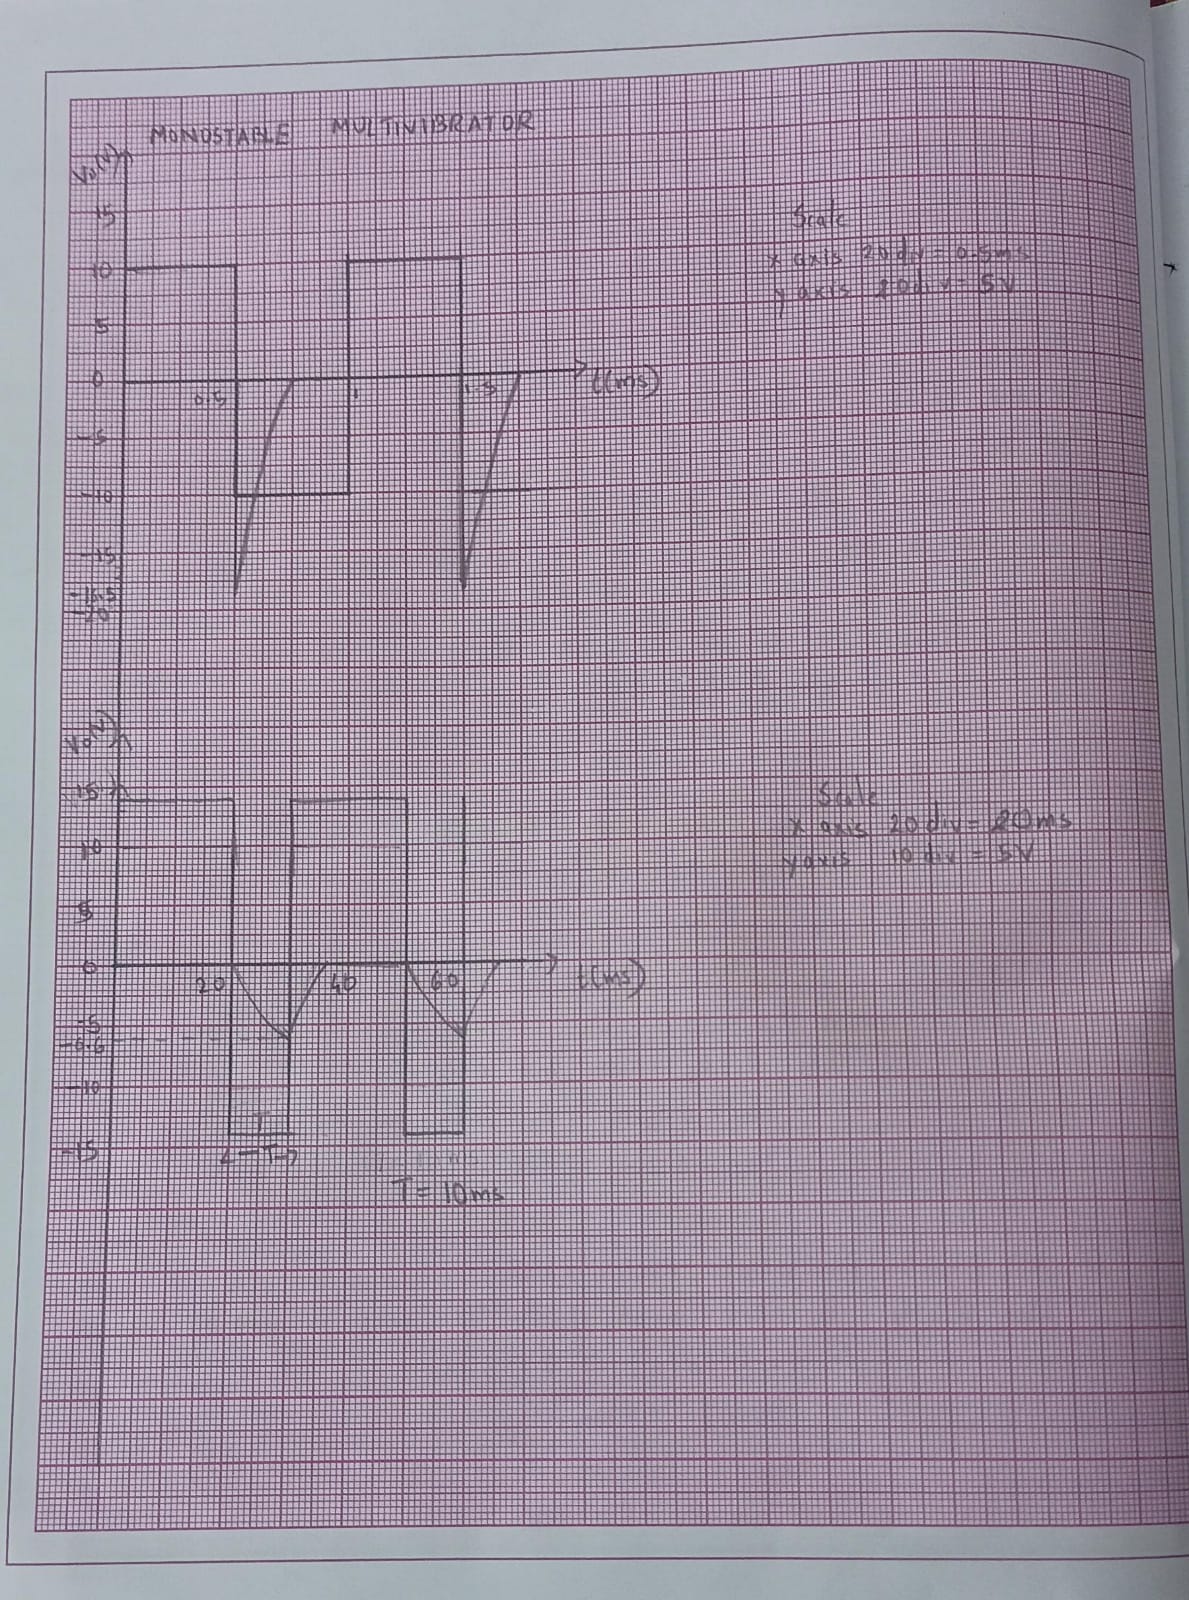 MONOSTABLE MULTIVIBRATOR
Vo(V)
15
10
5
0
-5
-10
-15
-16.5
-20
0.5
1
1.5
t(ms)
Scale
x axis 20 div = 0.5ms
y axis 10 div = 5V
Vo(V)
15
10
5
0
-5
-6.6
-10
-15
20
40
60
t(ms)
T
T
T = 10ms
Scale
x axis 20 div = 20ms
y axis 10 div = 5V